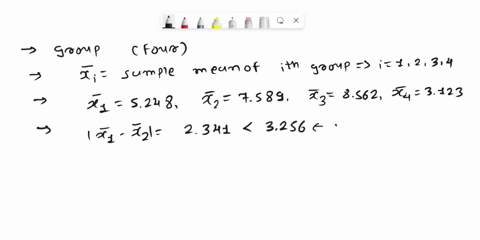 → group (four)
→ x̄i = sample mean of ith group => i = 1, 2, 3, 4
→ x̄1 = 5.248, x̄2 = 7.589, x̄3 = 8.562, x̄4 = 3.123
→ |x̄1 - x̄2| = 2.341 < 3.256 ←